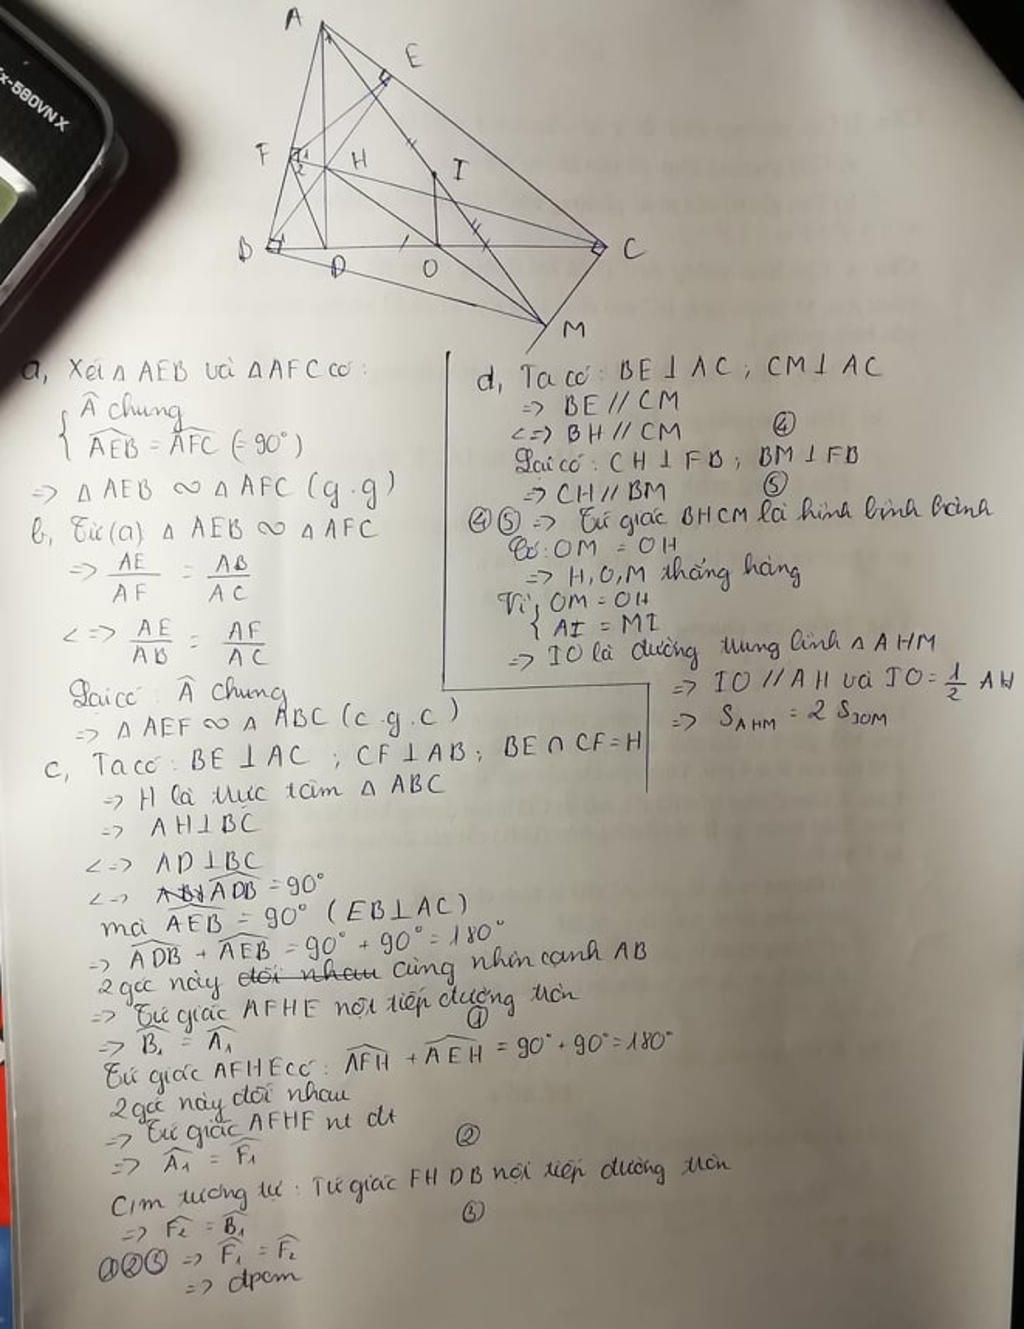 fx-580VNX
A
E
F
1
2
H
I
B
1
D
O
C
M
a, Xét △ AEB và △AFC có :
Â chung
AEB = AFC (= 90°)
=> △ AEB ∽ △ AFC (g.g)
b, Từ (a) △ AEB ∽ △ AFC
=> AE/AF = AB/AC
<=> AE/AB = AF/AC
Lại có : Â chung
=> △ AEF ∽ △ ABC (c.g.c)
c, Ta có : BE ⊥ AC ; CF ⊥ AB ; BE ∩ CF = H
=> H là trực tâm △ ABC
=> AH ⊥ BC
<=> AD ⊥ BC
<=> ADB = 90°
mà AEB = 90° (EB ⊥ AC)
=> ADB + AEB = 90° + 90° = 180°
2 góc này đối nhau cùng nhìn cạnh AB
=> Tứ giác AFHE nội tiếp đường tròn
=> B₁ = A₁ ①
Tứ giác AFHE có : AFH + AEH = 90° + 90° = 180°
2 góc này đối nhau
=> Tứ giác AFHE nt đt
=> A₁ = F₁ ②
Cm tương tự : Tứ giác FHDB nội tiếp đường tròn
=> F₂ = B₁ ③
①②③ => F₁ = F₂
=> đpcm
d, Ta có : BE ⊥ AC ; CM ⊥ AC
=> BE // CM
<=> BH // CM ④
Lại có : CH ⊥ FB ; BM ⊥ FB
=> CH // BM ⑤
④⑤ => Tứ giác BHCM là hình bình hành
Có : OM = OH
=> H, O, M thẳng hàng
Vì { OM = OH
AI = MI
=> IO là đường trung bình △ AHM
=> IO // AH và IO = 1/2 AH
=> S AHM = 2 S IOM